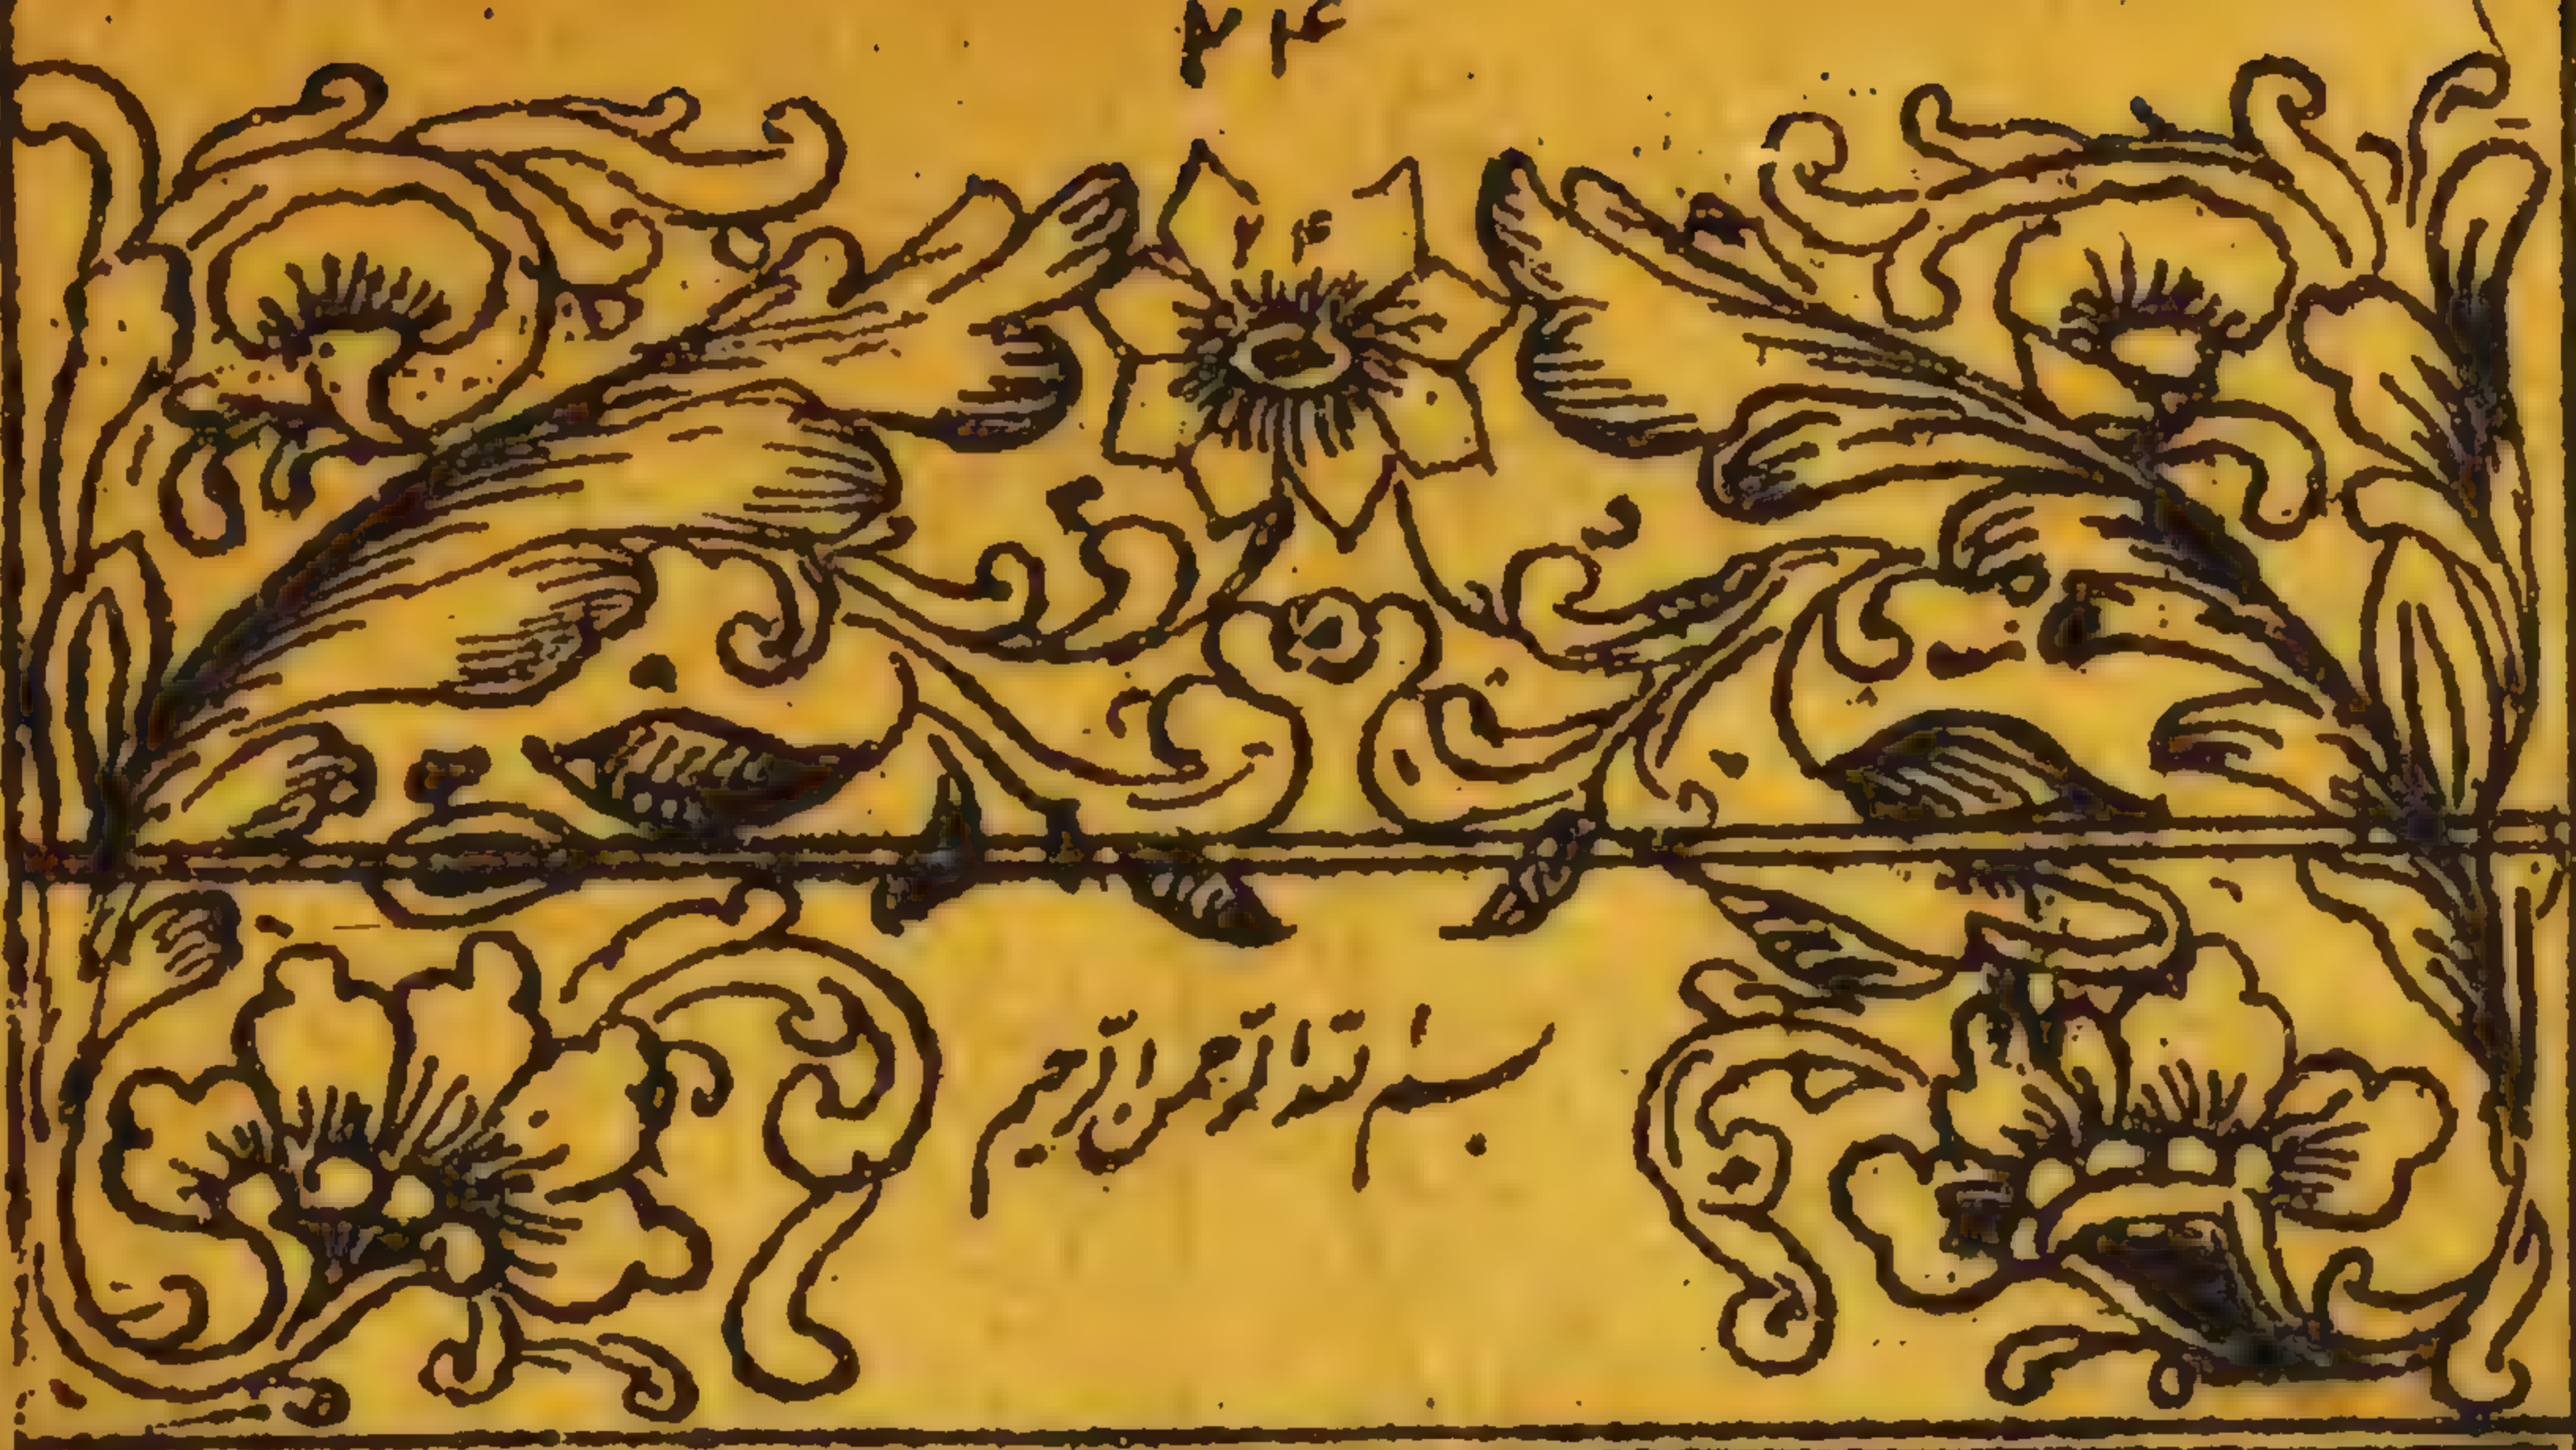 ۲۴
۲۴
بسم الله الرحمن الرحیم